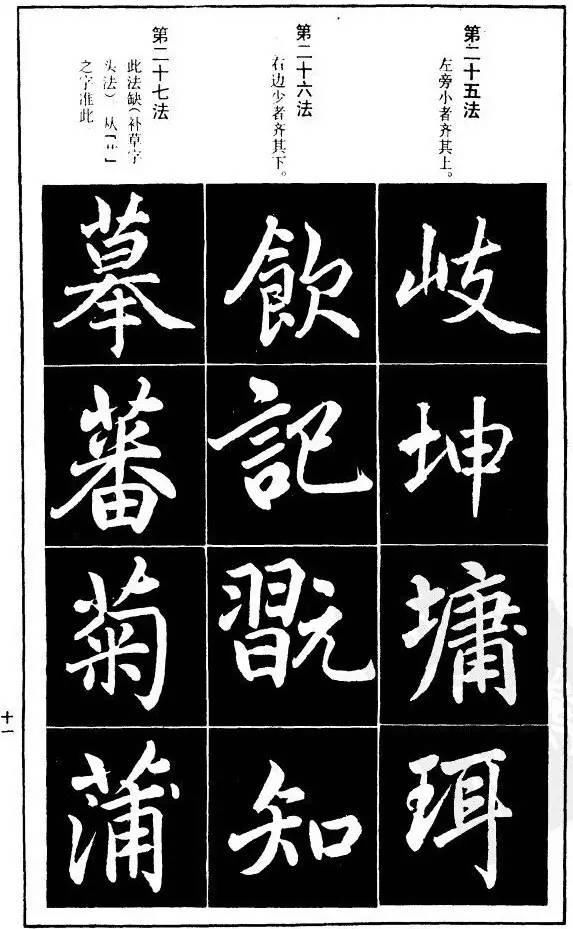 第二十五法
左旁小者齐其上。
岐
坤
墉
珥
第二十六法
右边少者齐其下。
飲
記
翫
知
第二十七法
此法缺（补草字
头法）从「艹」
之字准此
摹
蕃
菊
蒲
十一